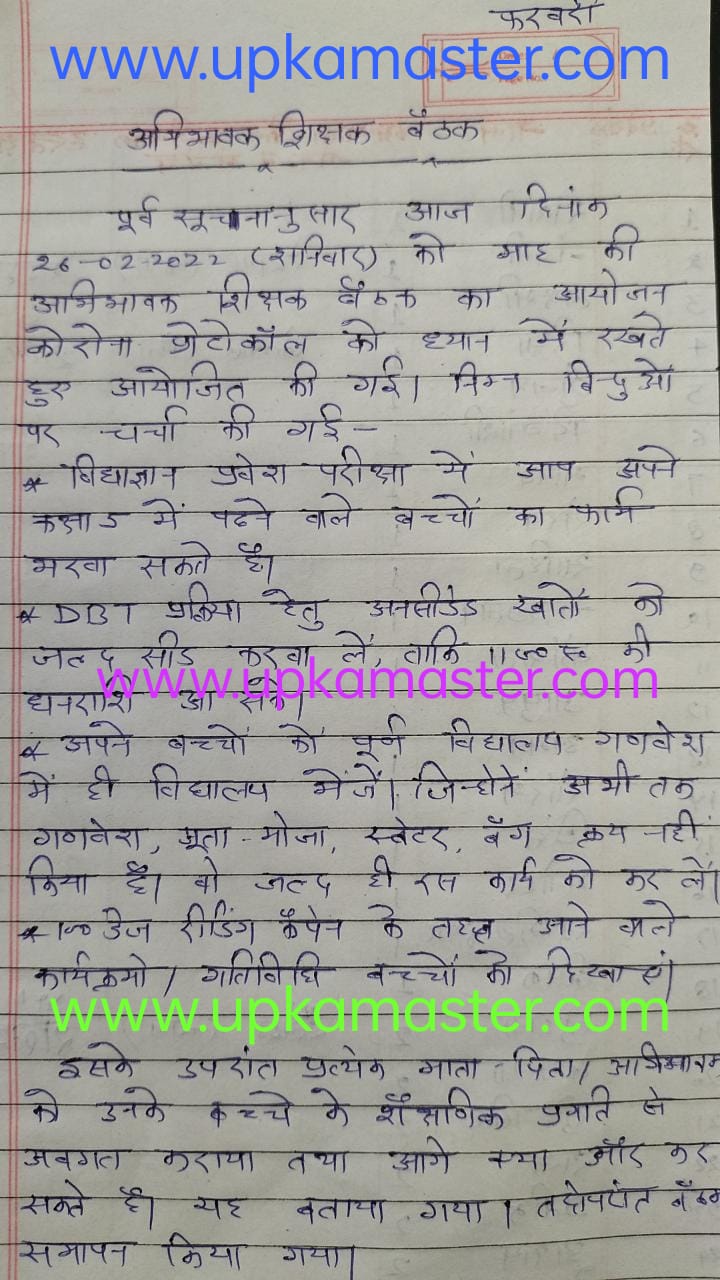 फरवरी
www.upkamaster.com
अभिभावक शिक्षक बैठक
पूर्व सूचनानुसार आज दिनांक
26-02-2022 (शनिवार) को माह की
अभिभावक शिक्षक बैठक का आयोजन
कोरोना प्रोटोकॉल को ध्यान में रखते
हुए आयोजित की गई। निम्न बिन्दुओं
पर चर्चा की गई –
* विद्याज्ञान प्रवेश परीक्षा में आप अपने
कक्षा 5 में पढने वाले बच्चों का फार्म
भरवा सकते है।
* DBT प्रक्रिया हेतु अनसीडेड खातों को
जल्द सीड करवा लें, ताकि 1100 रु० की
www.upkamaster.com
धनराशि आ सके।
* अपने बच्चों को पूर्ण विद्यालय गणवेश
में ही विद्यालय भेंजें। जिन्होनें अभी तक
गणवेश, जूता-मोजा, स्वेटर, बैग क्रय नही
किया है। वो जल्द ही इस कार्य को कर लें।
* 100 डेज रीडिंग कैंपेन के तहत आने वाले
कार्यक्रमो / गतिविधि बच्चों को दिखाएं।
www.upkamaster.com
इसके उपरांत प्रत्येक माता-पिता / अभिभावक
को उनके बच्चे के शैक्षणिक प्रगति से
अवगत कराया तथा आगे क्या और कर
सकते है। यह बताया गया। तदोपरांत बैठक
समापन किया गया।